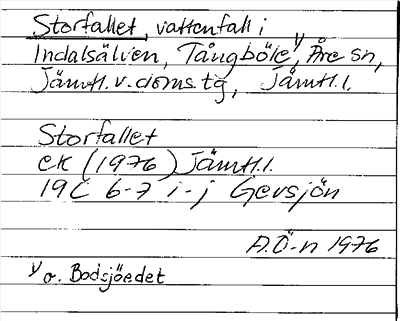 Storfallet, vattenfall i
Indalsälven, Tångböle√, Åre sn,
Jämtl. v. doms. tg, Jämtl. l.
Storfallet
ek (1976) Jämtl. l.
19C 6-7 i-j Gevsjön
A.Ö-n 1976
√ o. Bodsjöedet